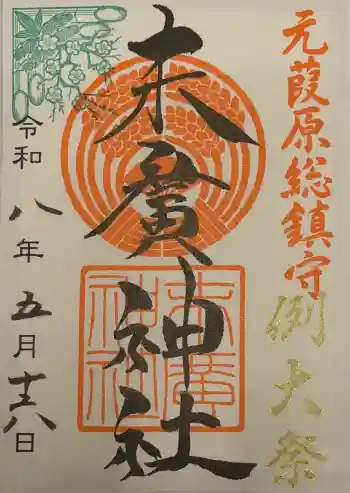 元葭原総鎮守
例大祭
末廣神社
末廣
神社
令和八年五月十八日